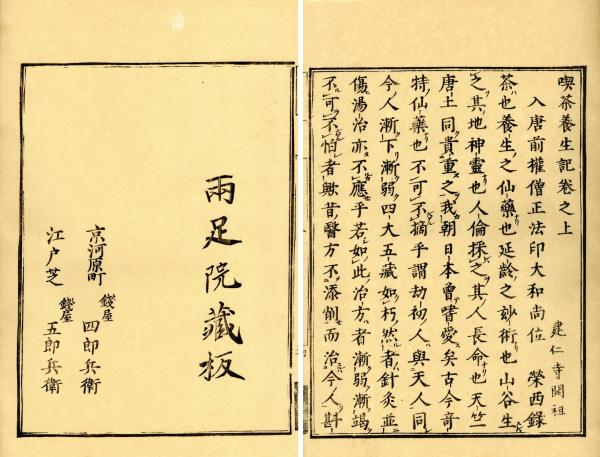 喫茶養生記卷之上
入唐前權僧正法印大和尚位　榮西錄
建仁寺開祖
茶也養生之仙藥也延齡之妙術也山谷生
之其地神靈也人倫採之其人長命也天竺
唐土同貴重之我朝日本曾嗜愛矣古今奇
特仙藥也不可不摘乎謂劫初人與天人同
今人漸下漸弱四大五藏如朽然者針灸並
傷湯治亦不應乎若如此治方者漸弱漸竭
不可不怕者歟昔醫方不添削而治今人斟
兩足院藏板
京河原町　錢屋　四郎兵衛
江戸芝　錢屋　五郎兵衛